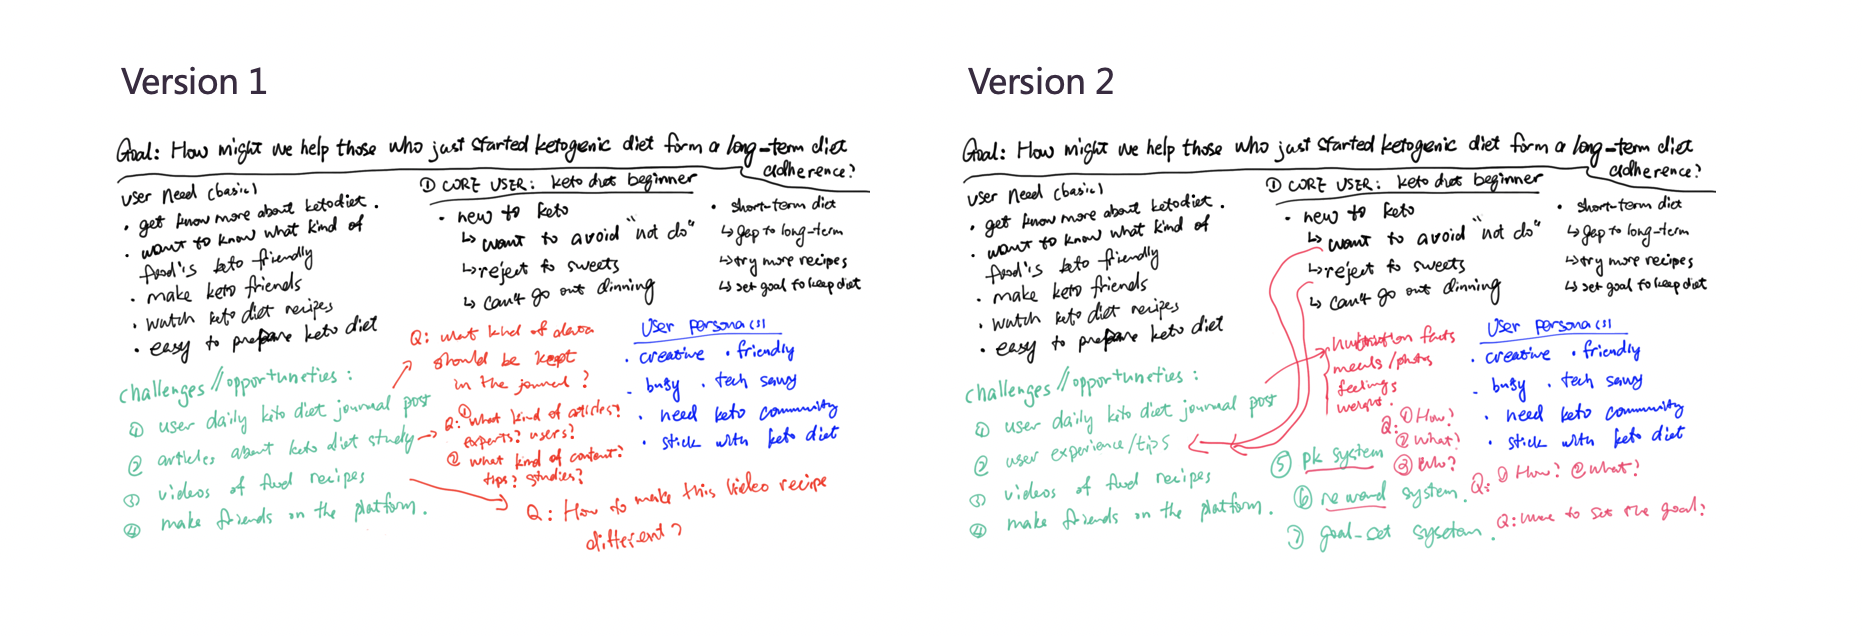 Version 1
Goal: How might we help those who just started ketogenic diet form a long-term diet
adherence?
user need (basic)
• get know more about ketodiet.
• want to know what kind of
food's keto friendly
• make keto friends
• watch keto diet recipes
• easy to prepare keto diet
① CORE USER: keto diet beginner
• new to keto
↳ want to avoid "not do"
↳ reject to sweets
↳ can't go out dinning
• short-term diet
↳ gep to long-term
↳ try more recipes
↳ set goal to keep diet
Q: what kind of data
should be kept
in the journal?
User persona(s)
• creative • friendly
• busy • tech savvy
• need keto community
• stick with keto diet
challenges // opportuneties:
① user daily kito diet journal post
② articles about keto diet study
③ videos of food recipes
④ make friends on the platform.
Q: ① What kind of articles?
experts? users?
② what kind of content?
tips? studies?
Q: How to make this video recipe
different?
Version 2
Goal: How might we help those who just started ketogenic diet form a long-term diet
adherence?
user need (basic)
• get know more about ketodiet.
• want to know what kind of
food's keto friendly
• make keto friends
• watch keto diet recipes
• easy to prepare keto diet
① CORE USER: keto diet beginner
• new to keto
↳ want to avoid "not do"
↳ reject to sweets
↳ can't go out dinning
• short-term diet
↳ gep to long-term
↳ try more recipes
↳ set goal to keep diet
nutrition facts
meals/photos
feelings
weight.
User persona(s)
• creative • friendly
• busy • tech savvy
• need keto community
• stick with keto diet
challenges // opportuneties:
① user daily kito diet journal post
② user experience/tips
③ videos of food recipes
④ make friends on the platform.
⑤ pk system
Q: ① How?
② What?
③ Who?
⑥ reward system.
Q: ① How? ② What?
⑦ goal-set sysetem.
Q: to set the goal?